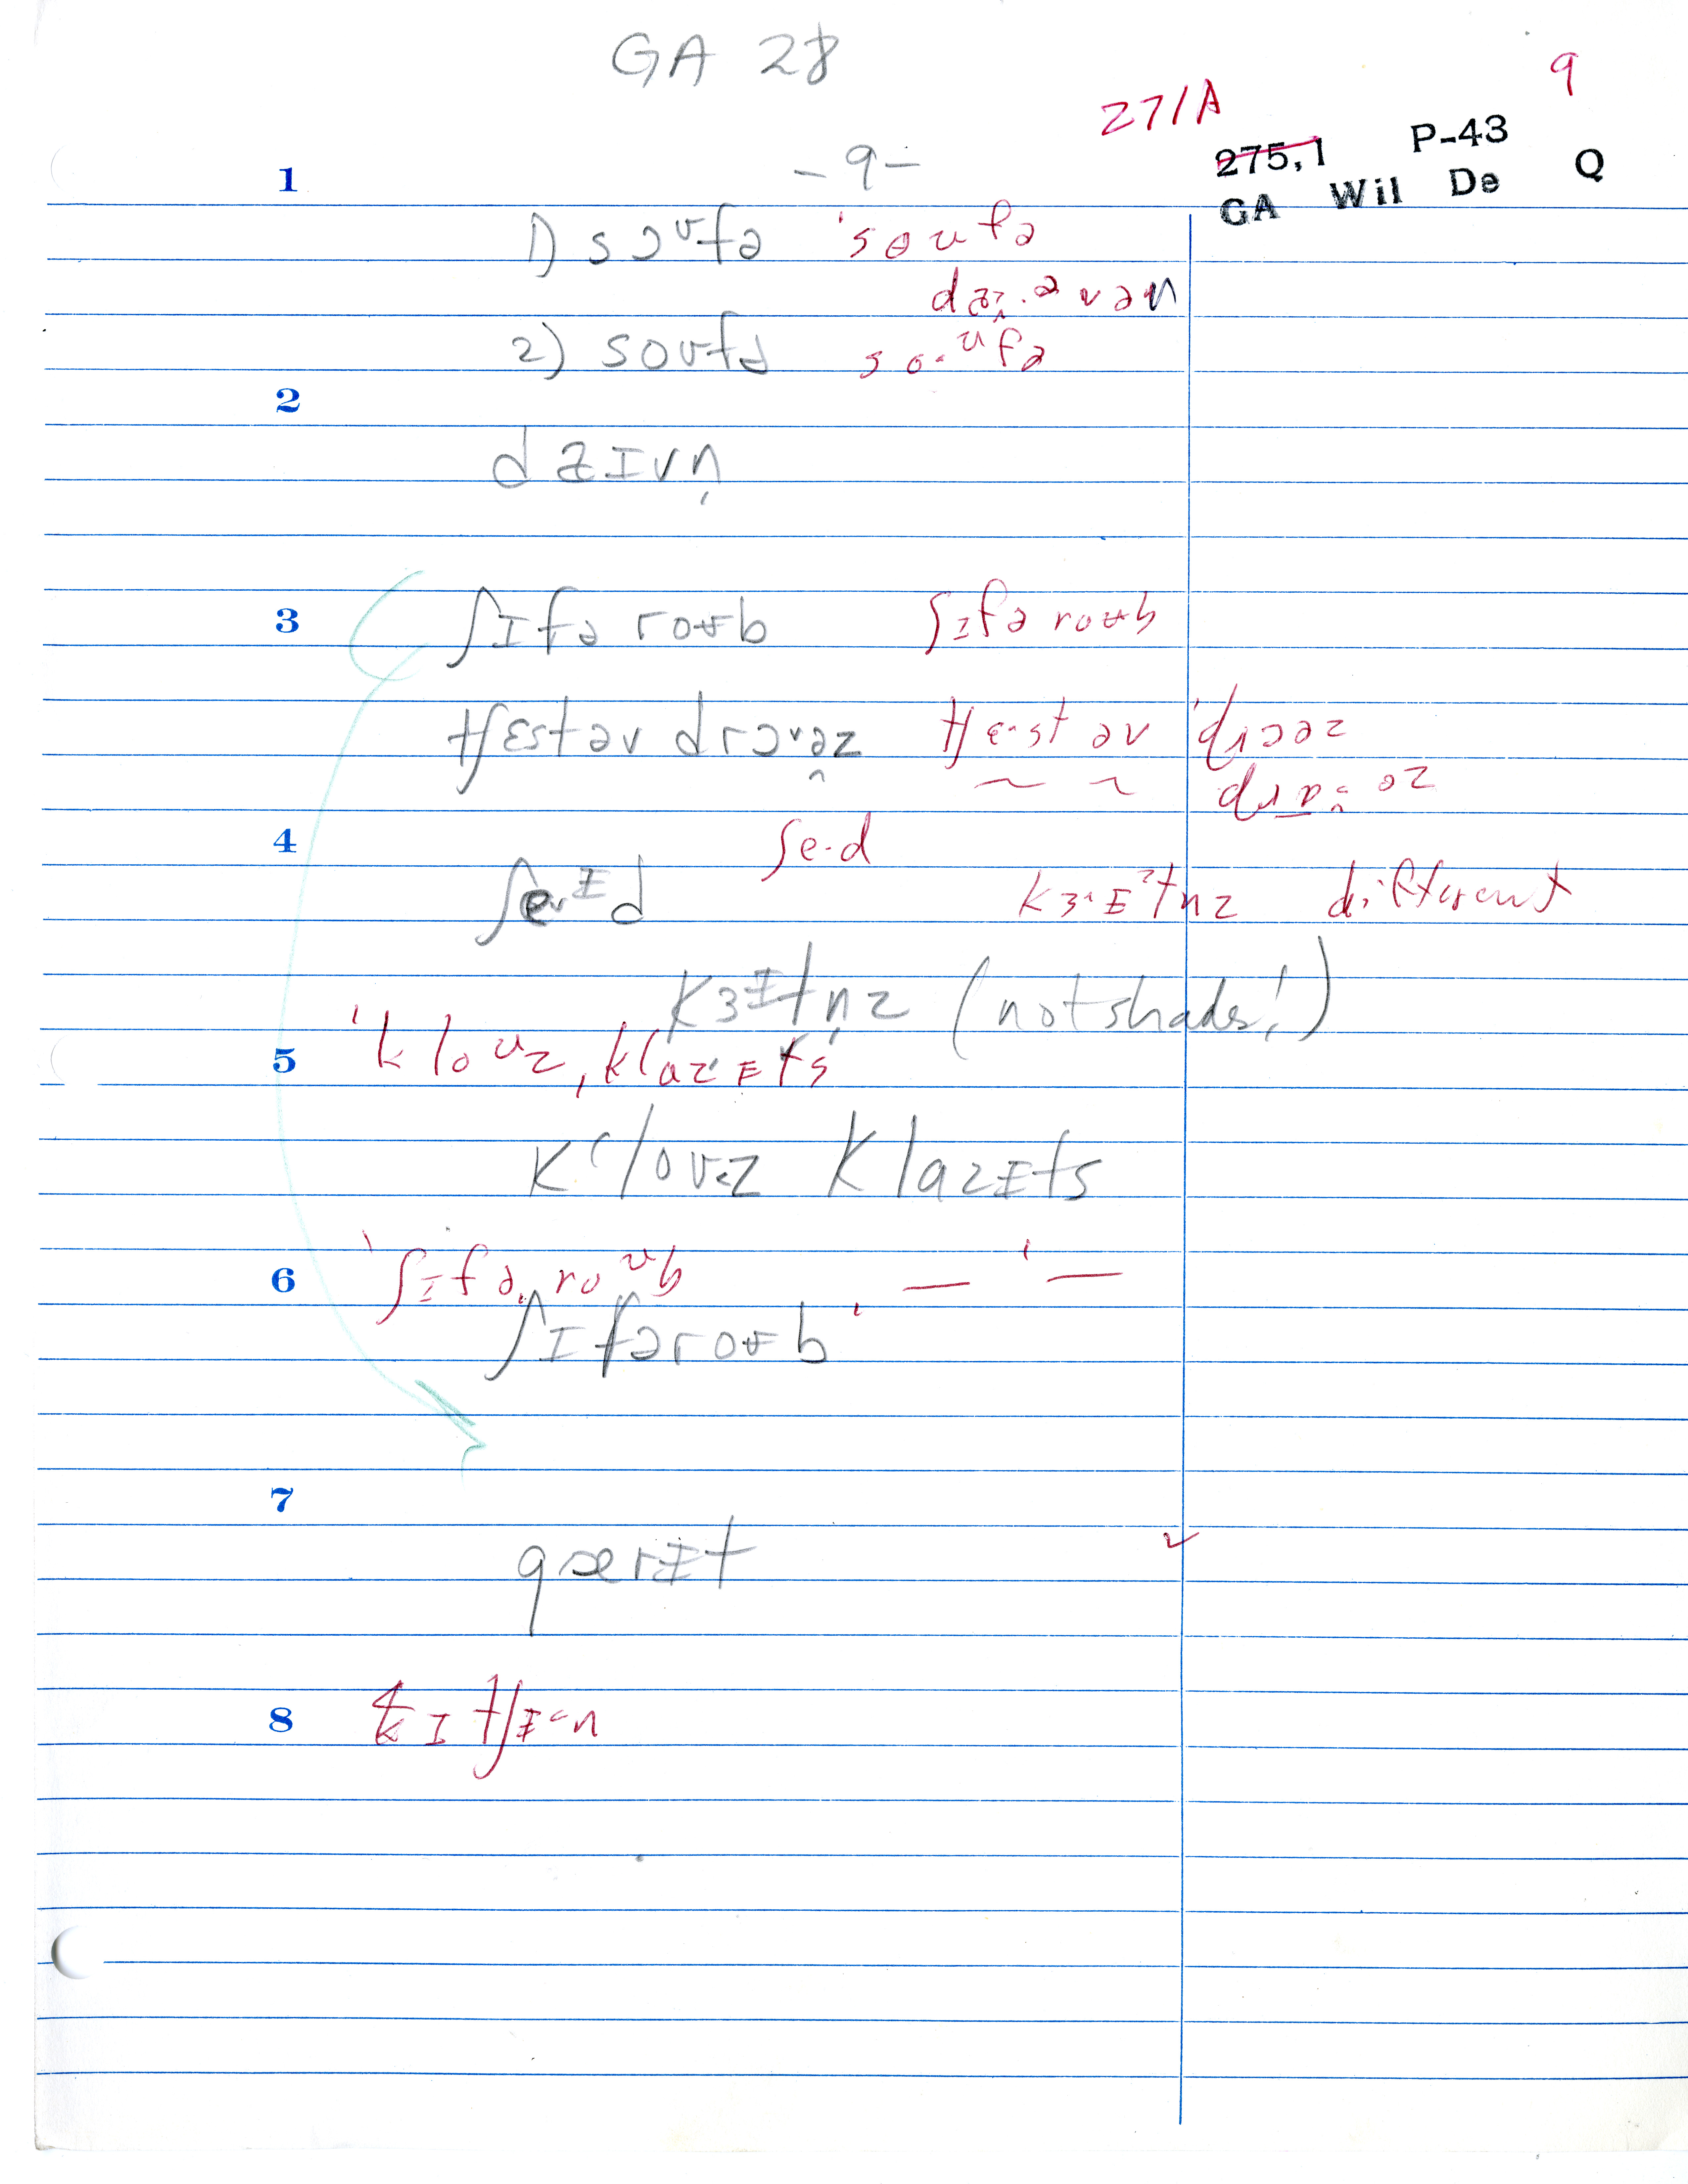 GA 28
9
27/A
275,1 P-43
-9-
GA Wil De Q
1
1) sɔʊfə 'soufə
2) soʊfə so·ᵘfə
2
dʒɪvn̩
3 ʃɪfəroʊb ʃɪfəroʊb
tʃɛst əv drɔʊəz tʃe·st əv 'drɔəz
4 ʃe·d
ʃeɪd kɜ·ɪʔtnz different
kɜɪtn̩z (not shades!)
5 'kloᵘz, klazɪts
kloʊz klazɪts
6 'ʃɪfəroᵘb — ' —
ʃɪfəroʊb
7
gærɪt ✓
8 kɪtʃɪ·n